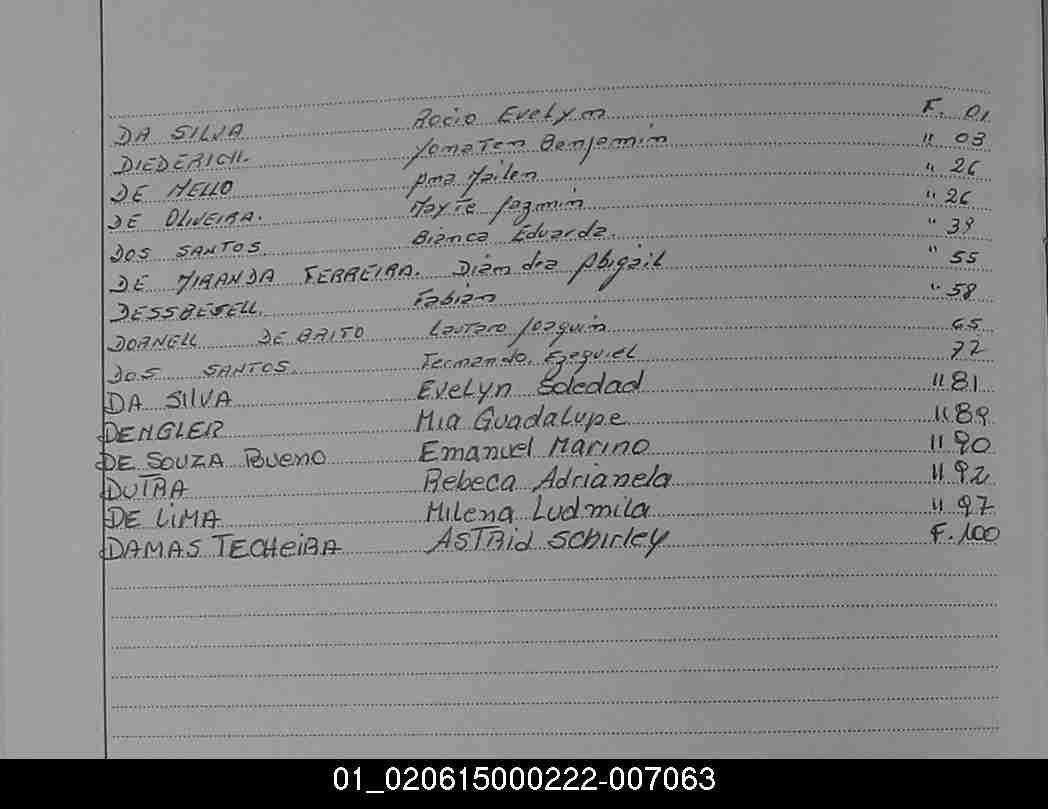 DA SILVA Rocio Evelyn F. 01
DIEDERICH. Yonaten Benjamin " 03
DE MELLO Ana Mailen " 26
DE OLIVEIRA. Mayte Jazmin " 26
DOS SANTOS. Bianca Eduarda. " 39
DE MIRANDA FERREIRA. Diandra Abigail " 55
DESSBESELL. Fabian " 58
DORNELL DE BRITO Lautaro Joaquin 65
DOS SANTOS. Fernando Ezequiel 72
DA SILVA Evelyn Soledad " 81
DENGLER Mia Guadalupe " 89
DE SOUZA Bueno Emanuel Marino " 90
DUTRA Rebeca Adrianela " 92
DE LiMA Milena Ludmila " 97
DAMAS TECHeiRA ASTRid SChirley F. 100
01_020615000222-007063